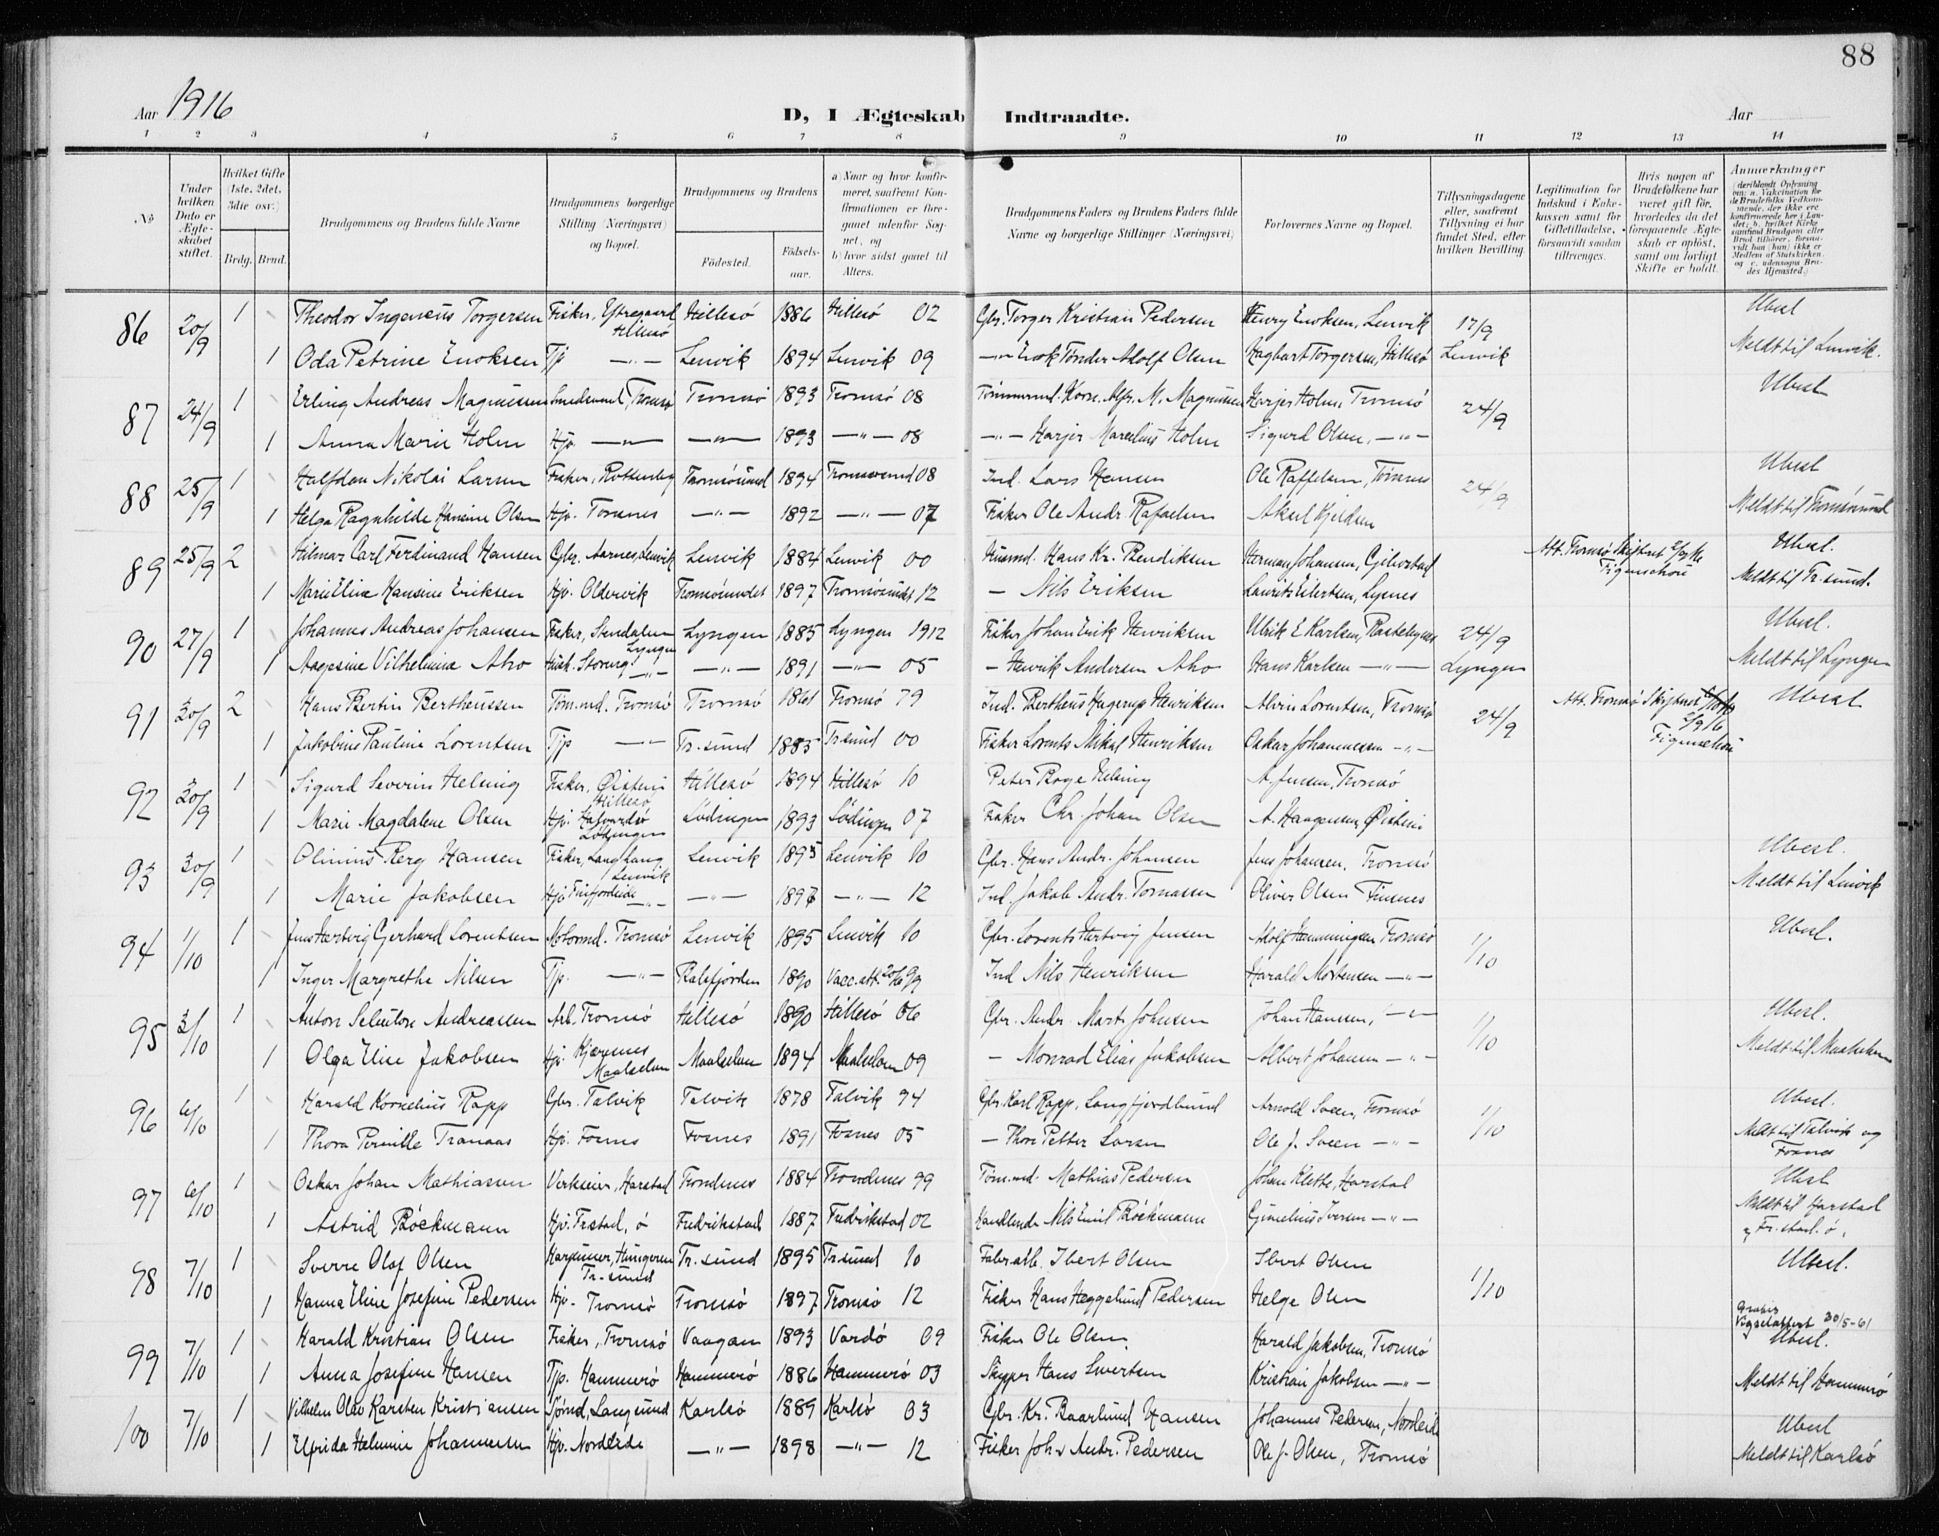 88
Aar 1916
D, I Ægteskab Indtraadte.
Aar
1 2 3 4 5 6 7 8 9 10 11 12 13 14
No
Under hvilken Dato er Ægteskabet stiftet.
Hvilket Gifte (1ste, 2det, 3die osv.)
Brdg. Brud.
Brudgommens og Brudens fulde Navne
Brudgommens borgerlige Stilling (Næringsvei) og Bopæl.
Brudgommens og Brudens
Fødested. Fødsels-aar.
a) Naar og hvor konfirmeret, saafremt Konfirmationen er foregaaet udenfor Sognet, og
b) hvor sidst gaaet til Alters.
Brudgommens Faders og Brudens Faders fulde Navne og borgerlige Stillinger (Næringsvei)
Forlovernes Navne og Bopæl.
Tillysningsdagene eller, saafremt Tillysning ei har fundet Sted, efter hvilken Bevilling
Legitimation for Indskud i Enkekassen samt for Giftetilladelse, forsaavidt saadan tiltrænges.
Hvis nogen af Brudefolkene har været gift før, hvorledes da det foregaaende Ægteskab er opløst, samt om lovligt Skifte er holdt.
Anmærkninger
86 20/9 1 Theodor Ingenius Torgersen Fisker, Yttregaard Hillesö Hillesö 1886 Hillesö 02 Gbr. Torger Kristian Pedersen Henry Enoksen, Lenvik 17/9 Ubesl
1 Oda Petrine Enoksen Tjp —"— Lenvik 1894 Lenvik 09 —"— Enok Tönder Adolf Olsen Hagbart Torgersen, Hillesö Lenvik Meldt til Lenvik.
87 24/9 1 Erling Andreas Magnussen Smedsvend, Tromsö Tromsö 1893 Tromsö 08 Tömmermd. Korn. Alfr. M. Magnussen Harjer Holm, Tromsö 24/9 Ubesl
1 Anna Marie Holm Hjv. —"— —"— 1893 —"— 08 —"— Harjer Marelius Holm Sigurd Olsen, —"—
88 25/9 1 Halfdan Nikolai Larsen Fisker, Tromsösund 1894 Tromsösund 08 Ind. Lars Hansen Ole Raffelsen, 24/9 Ubesl
1 Helga Ragnhilde Hansine Olsen Hjv. Tomsnes —"— 1892 —"— 07 Fisker Ole Andr. Rafaelsen Aksel Kjeldsen Meldt til Tromsösund
89 25/9 2 Hilmar Carl Ferdinand Hansen Gbr. Aarnes, Lenvik Lenvik 1884 Lenvik 00 Husmd. Hans Kr. Bendiksen Herman Johansen, Gibostad Att. Tromsö Skifteret Figenschou Ubesl.
1 Marie Eline Hansine Eriksen Hjv. Oldervik Tromsösundet 1897 Tromsösundet 12 — Nils Eriksen Laurits Eilertsen, Lysnes Meldt til Tr.sund.
90 27/9 1 Johannes Andreas Johansen Fisker, Stendalen Lyngen Lyngen 1885 Lyngen 1912 Fisker Johan Erik Henriksen Ulrik E Karlsen, 24/9 Ubesl.
1 Aagesine Vilhelmina Aho Hush. Storeng —"— —"— 1891 —"— 05 — Henrik Andersen Aho Hans Karlsen —"— Lyngen Meldt til Lyngen
91 30/9 2 Hans Bertin Bertheussen Töm.md. Tromsö Tromsö 1861 Tromsö 79 Ind. Bertheus Hagerup Henriksen Alvin Lorentsen, Tromsö 24/9 Att. Tromsö Skifteret 2/9 16 Figenschou Ubesl
1 Jakobine Pauline Lorentsen Tjp —"— Tr.sund 1885 Tr.sund 00 Fisker Lorents Mikal Henriksen Oskar Johannessen —"—
92 30/9 1 Sigurd Severin Helmig Fisker, Öistein Hillesö Hillesö 1894 Hillesö 10 Peter Boye Helmig A. Jensen, Tromsö
1 Marie Magdalene Olsen Hjv. Lödingen Lödingen 1893 Lödingen 07 Fisker Chr. Johan Olsen A. Haagensen, Öistein
93 30/9 1 Olinius Berg Hansen Fisker, Lenvik Lenvik 1895 Lenvik 10 Gbr. Hans Andr. Johansen Jens Johansen, Tromsö Ubesl.
1 Marie Jakobsen Hjv. Finfjordeide —"— —"— 1897 —"— 12 Ind. Jakob Andr. Tomassen Oliver Olsen Finsnes Meldt til Lenvik
94 1/10 1 Jens Hertvig Gerhard Lorentsen Motormd. Tromsö Lenvik 1895 Lenvik 10 Gbr. Lorents Hertvig Jensen Adolf Hemmingsen Tromsö 1/10 Ubesl.
1 Inger Margrethe Nilsen Tjp. —"— Balsfjorden 1890 Vacc. att. 20/6 99 Ind Nils Henriksen Harald Mortensen —"—
95 3/10 1 Anton Selenton Andreassen Arb. Tromsö Hillesö 1890 Hillesö 06 Gbr. Andr. Mart. Johnsen Johan Hansen, —"— 1/10 Ubesl.
1 Olga Eline Jakobsen Hjv. Kjærnes Maalselven Maalselven 1894 Maalselven 09 — Monrad Elias Jakobsen Albert Johansen —"— Meldt til Maalselven
96 6/10 1 Harald Kornelius Rapp Gbr. Talvik Talvik 1878 Talvik 94 Gbr. Karl Rapp, Langfjordbund Arnold Sveen, Tromsö 1/10 Ubesl.
1 Thora Pernille Tranaas Hjv. Fosnes Fosnes 1891 Fosnes 05 — Thore Petter Larsen Ole J. Sveen —"— Meldt til Talvik og Fosnes
97 6/10 1 Oskar Johan Mathiassen Verkseier, Harstad Trondenes 1884 Trondenes 99 Töm.md. Mathias Pedersen Johan Klette, Harstad Ubesl
1 Astrid Böckmann Hjv. Fr.stad, ö Fredrikstad 1887 Fredrikstad 02 Handlende Nils Emil Böckmann Iversen —"— Meldt til Harstad og Fr.stad. ö.
98 7/10 1 Sverre Olaf Olsen Tr.sund Tr.sund 1895 Tr.sund 10 Fabr.arb. Isbert Olsen Isbert Olsen 1/10 Ubesl.
1 Hanna Eline Josefine Pedersen Hjv. Tromsö Tromsö 1897 Tromsö 12 Fisker Hans Heggelund Pedersen Helge Olsen
Gratis Vigselattest 30/5-61
99 7/10 1 Harald Kristian Olsen Fisker, Tromsö Vaagan 1893 Vardö 09 Fisker Ole Olsen Harald Jakobsen, Tromsö Ubesl.
1 Anna Josefine Hansen Tjp. Hammerö Hammerö 1886 Hammerö 03 Skipper Hans Sivertsen Kristian Jakobsen —"— Meldt til Hammerö
100 7/10 1 Vilhelm Olav Karsten Kristiansen Sjömd, Langsund Karlsö 1889 Karlsö 03 Gbr. Kr. Baarlund Hansen Johannes Pedersen, Nordeide Ubesl
1 Elfrida Helmine Johannesen Hjv. Nordeide —"— 1898 —"— 12 Fisker Joh. Andr. Pedersen Ole J. Olsen, Tromsö Meldt til Karlsö